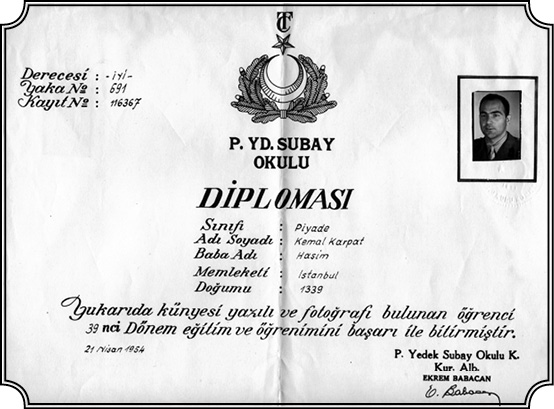 TC
Derecesi : -iyi-
Yaka No : 691
Kayıt No : 116367
P. YD. SUBAY
OKULU
DİPLOMASI
Sınıfı : Piyade
Adı Soyadı : Kemal Karpat
Baba Adı : Hasim
Memleketi : İstanbul
Doğumu : 1339
Yukarıda künyesi yazılı ve fotoğrafı bulunan öğrenci
39 nci Dönem eğitim ve öğrenimini başarı ile bitirmiştir.
21 Nisan 1954
P. Yedek Subay Okulu K.
Kur. Alb.
EKREM BABACAN
E. Babacan